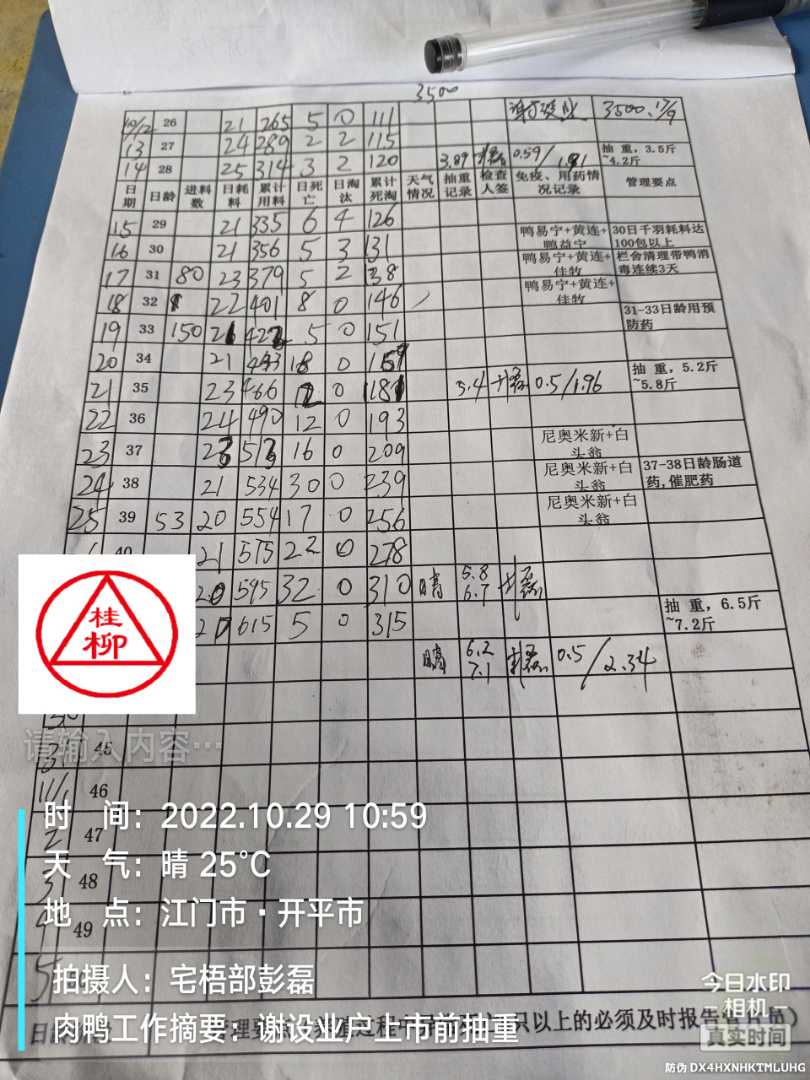 3500
10/12 26 21 265 5 0 111 3500. 17/9
13 27 24 289 2 2 115
14 28 25 314 3 2 120 0.59/1.91 抽重，3.5斤~4.2斤
日期 日龄 进料数 日耗料 累计用料 日死亡 日淘汰 累计死淘 天气情况 抽重记录 检查人签 免疫、用药情况记录 管理要点
15 29 21 335 6 4 126 鸭易宁+黄连+鸭益宁 30日千羽耗料达100包以上
16 30 21 356 5 3 131 鸭易宁+黄连+佳牧 栏舍清理带鸭消毒连续3天
17 31 80 23 379 5 2 138 鸭易宁+黄连+佳牧
18 32 22 401 8 0 146 31-33日龄用预防药
19 33 150 5 0 151
20 34 21 0
21 35 23 466 0 3.4 0.5/1.96 抽重，5.2斤~5.8斤
22 36 24 490 12 0 193
23 37 23 513 16 0 209 尼奥米新+白头翁
24 38 21 534 30 0 239 尼奥米新+白头翁 37-38日龄肠道药,催肥药
25 39 53 20 554 17 0 256 尼奥米新+白头翁
40 21 575 22 0 278
20 595 32 0 310 晴 5.8 6.7
20 615 5 0 315 抽重，6.5斤~7.2斤
晴 6.2 7.1 0.5/2.34
桂柳
请输入内容…
45
11/1 46
2 47
3 48
4 49
5
时 间：2022.10.29 10:59
天 气：晴 25℃
地 点：江门市·开平市
拍摄人：宅梧部彭磊
肉鸭工作摘要：谢设业户上市前抽重
只以上的必须及时报告
今日水印
相机
真实时间
防伪 DX4HXNHKTMLUHG